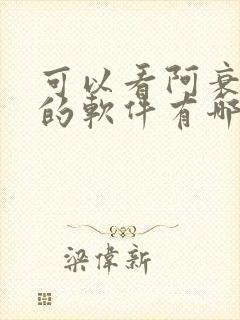 可以看阿衰
的軟件有哪
梁偉新